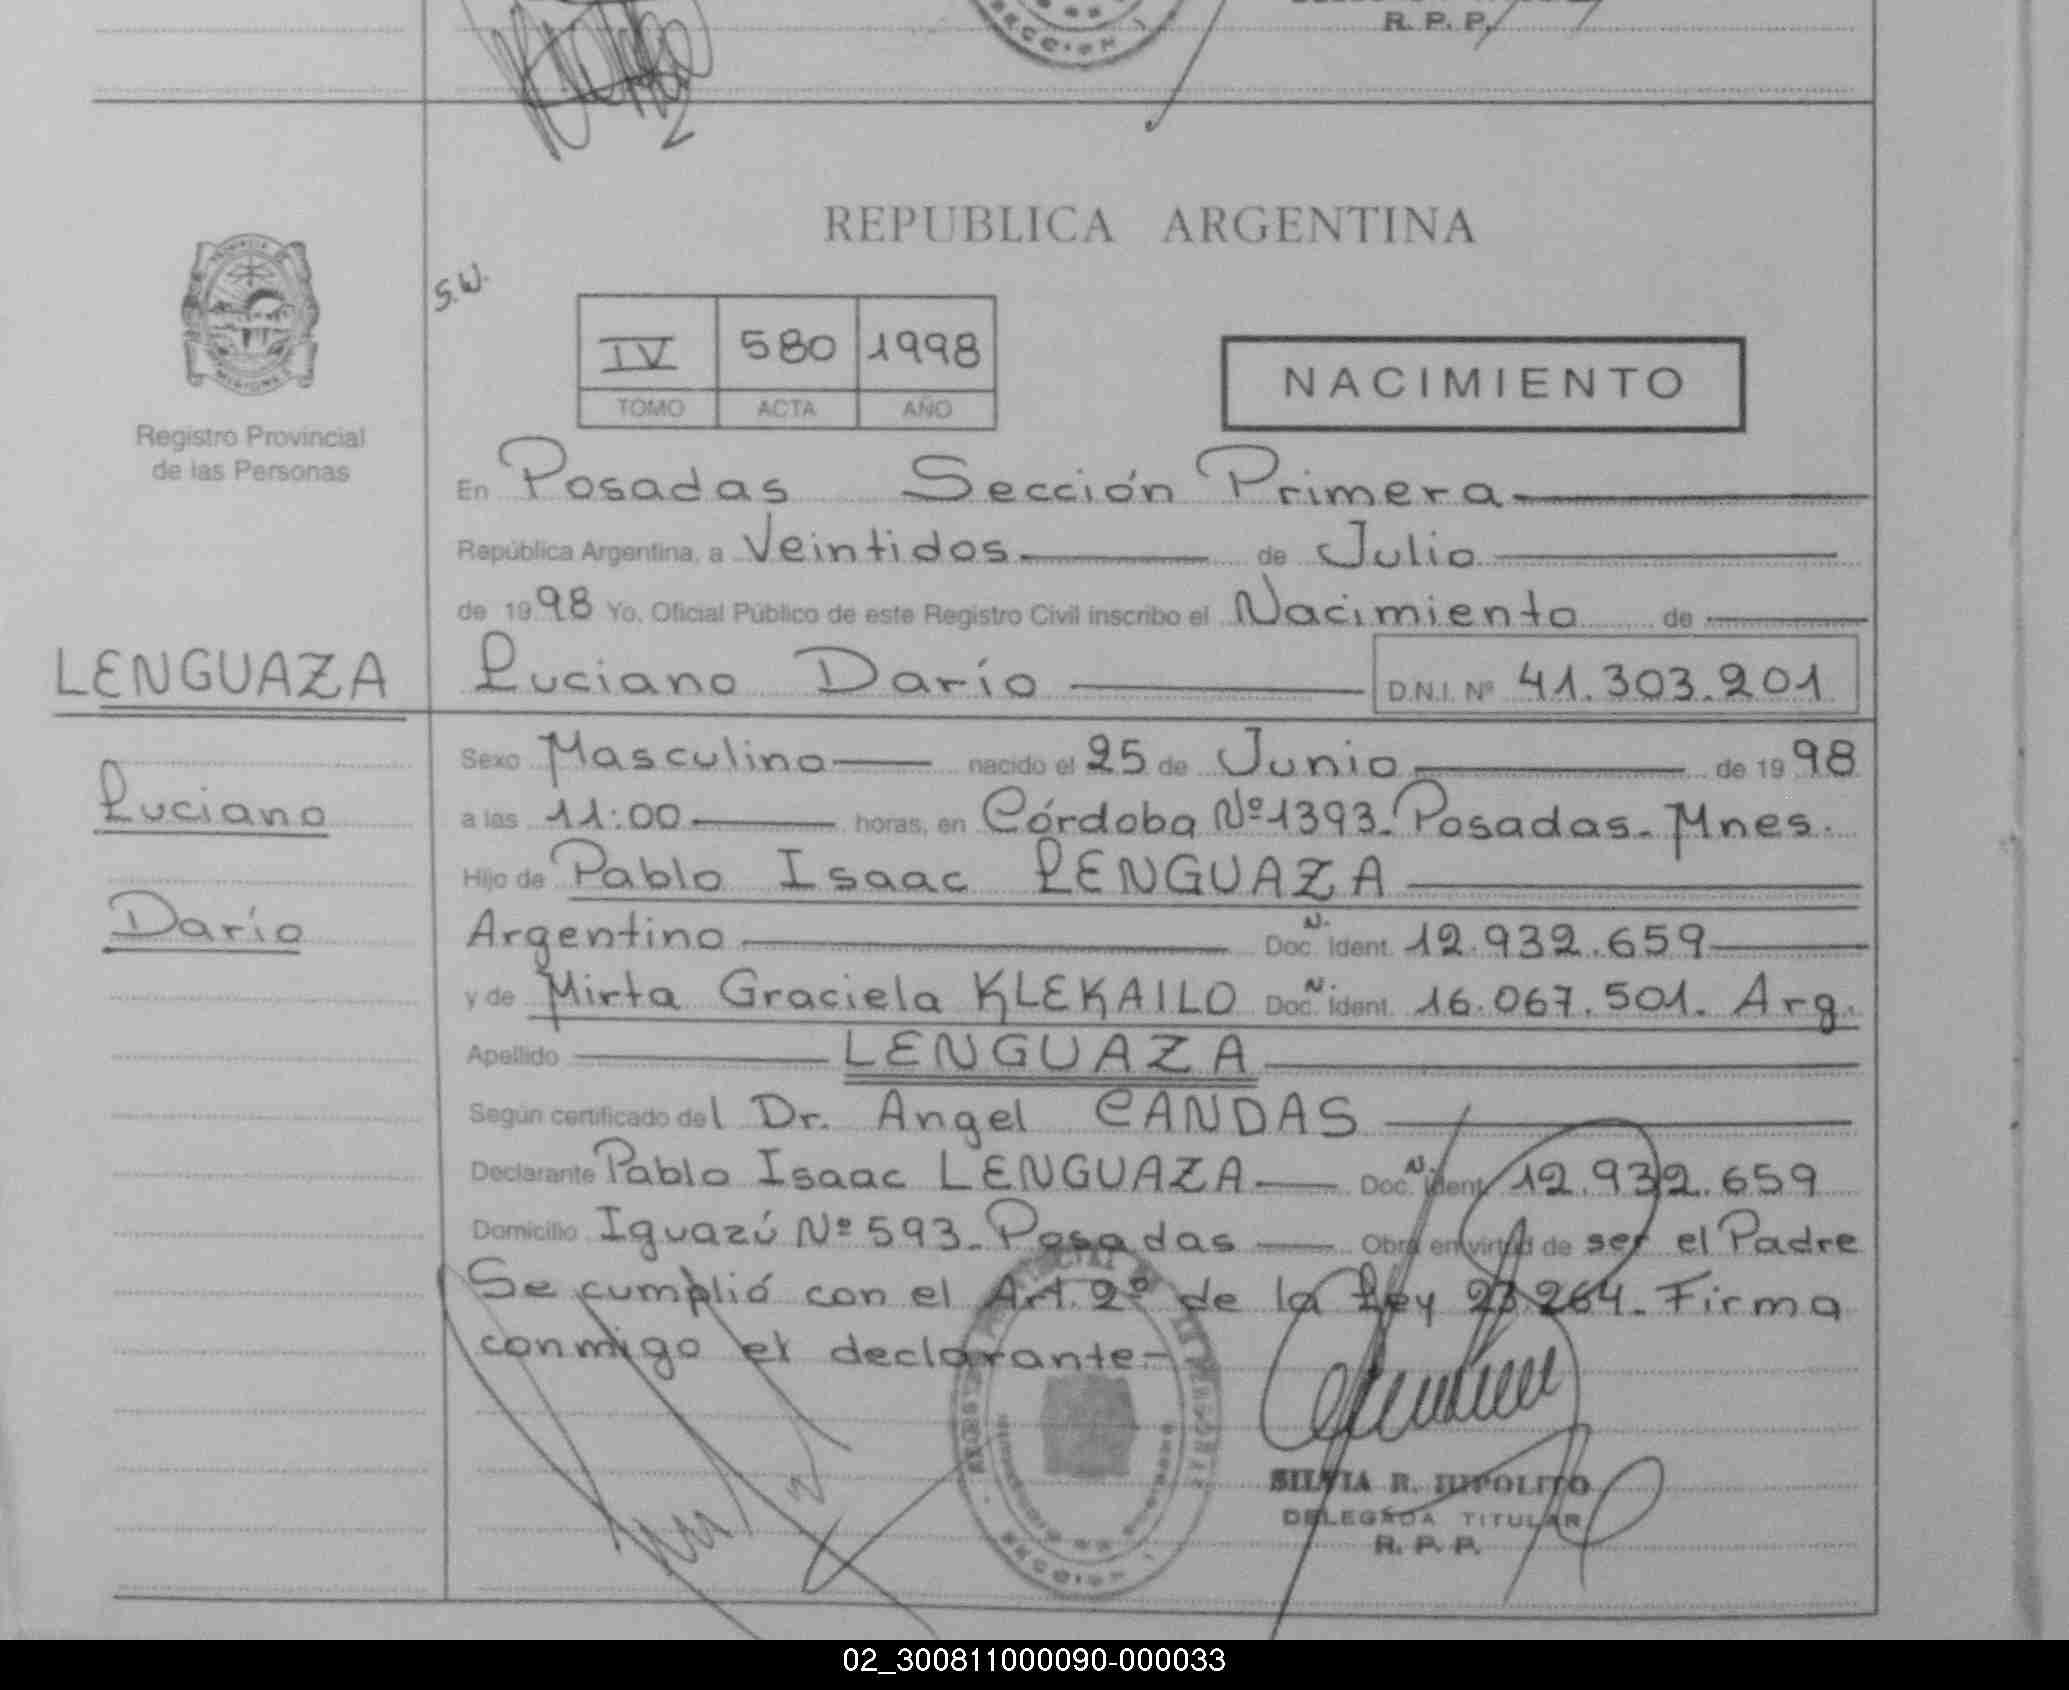 R. P. P.
SECCION 1
REPUBLICA ARGENTINA
S.W.
IV 580 1998
TOMO ACTA AÑO
NACIMIENTO
Registro Provincial
de las Personas
En Posadas Sección Primera
República Argentina, a Veintidos de Julio
de 1998 Yo, Oficial Público de este Registro Civil inscribo el Nacimiento de
LENGUAZA
Luciano Darío D.N.I. Nº 41.303.201
Sexo Masculino nacido el 25 de Junio de 1998
Luciano
a las 11:00 horas, en Córdoba Nº 1393. Posadas. Mnes.
Hijo de Pablo Isaac LENGUAZA
Darío
Argentino Doc. N. Ident. 12.932.659
y de Mirta Graciela KLEKAILO Doc. N. Ident. 16.067.501. Arg.
Apellido LENGUAZA
Según certificado del Dr. Angel CANDAS
Declarante Pablo Isaac LENGUAZA Doc. N. Ident. 12.932.659
Domicilio Iguazú Nº 593. Posadas Obra en virtud de ser el Padre
Se cumplió con el Art. 2º de la Ley 23.264. Firma
conmigo el declarante-
SILVIA R. HIPOLITO
DELEGADA TITULAR
R. P. P.
SECCION 1
02_300811000090-000033